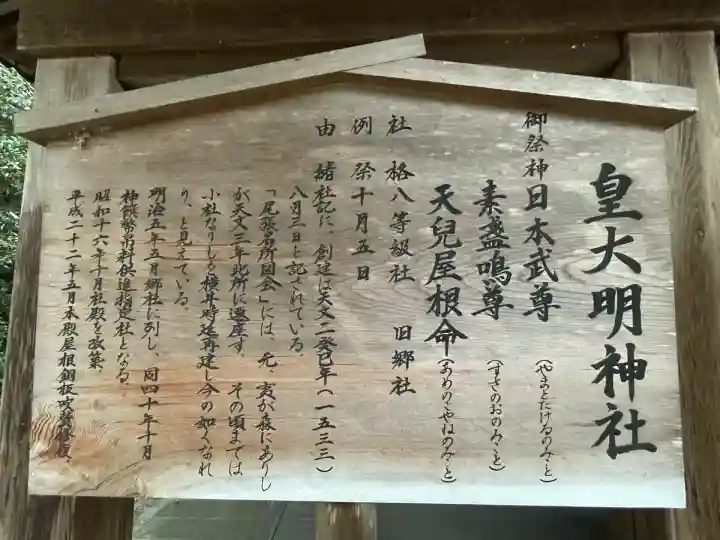 皇大明神社
御祭神 日本武尊(やまとたけるのみこと)
素盞鳴尊(すさのおのみこと)
天兒屋根命(あめのこやねのみこと)
社 格 八等級社 旧郷社
例 祭 十月五日
由 緒 社記に、創建は天文二癸巳年(一五三三)
八月三日と記されている。
「尾張名所図会」には、元、夷が森にありし
が天文三年此所に遷座す。その頃までは
小社なりしを横井時延再建し今の如くなれ
り、と見えている。
明治五年五月郷社に列し、同四十年十月
神饌幣帛料供進指定社となる。
昭和十六年十月社殿を改築。
平成二十二年五月本殿屋根銅板吹替修復。